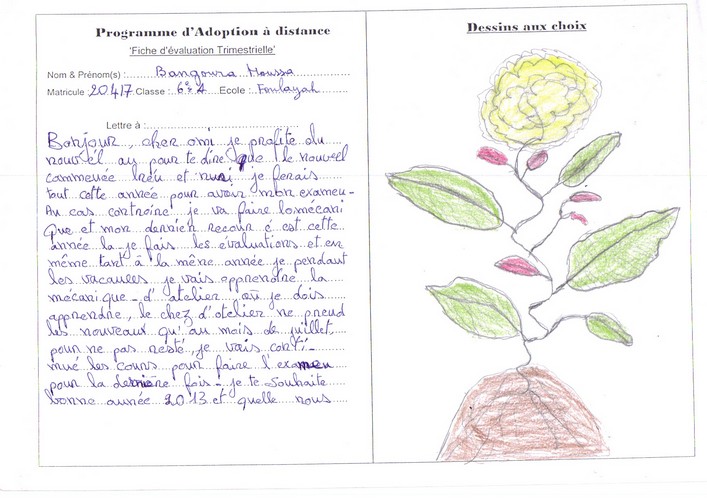 Programme d'Adoption à distance
'Fiche d'évaluation Trimestrielle'
Nom & Prénom(s) : Bangoura Moussa
Matricule 20417 Classe : 6è A Ecole : Foulayah
Lettre à :
Bonjour, cher ami je profite du
nouvel an pour te dire que le nouvel
commencé et je ferais
tout cette année pour avoir mon examen -
Au cas contraire je va faire la mécani
que et mon dernier recour c'est cette
année la je fais les évaluations et en
même tant à la même année je pendant
les vacances je vais apprendre la
mécanique - d'atelier où je dois
apprendre, le chez d'atelier ne prend
les nouveaux qu'au mois de juillet
pour ne pas resté, je vais conti-
nué les cours pour faire l'examen
pour la dernière fois - je te souhaite
bonne année 2013 et quelle nous
Dessins aux choix